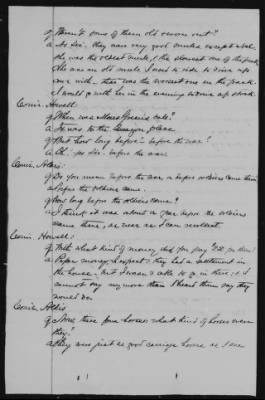 q Weren't some of them old & worn out?
a No Sir - they were very good mules except Nell.
she was the oldest mule, & the slowest one of the pack.
She was an old mule I used to ride to drive up
cows with - That was the worst one in the pack.
I would go with her in the evening to drive up stock.
Com'r. Howell:
q When was Moss Green's sale?
a It was to the Sumrger place
q But how long before - before the war?
a Oh! yes Sir - before the war
Com'r. Aldis:
q Do you mean before the war, or before soldiers came there?
a Before the soldiers came.
q How long before the soldiers came?
a I think it was about a year before the soldiers
came there, as near as I can recollect.
Com'r. Howell:
q With what kind of money did you pay for them?
a Paper money, I expect; they had a settlement in
the house - but I wasn't able to go in there; & I
cannot say any more than I heard them say they
would do.
Com'r. Aldis
q Were these four horses, what kind of horses were
they?
a They were just as good carriage horses as I ever